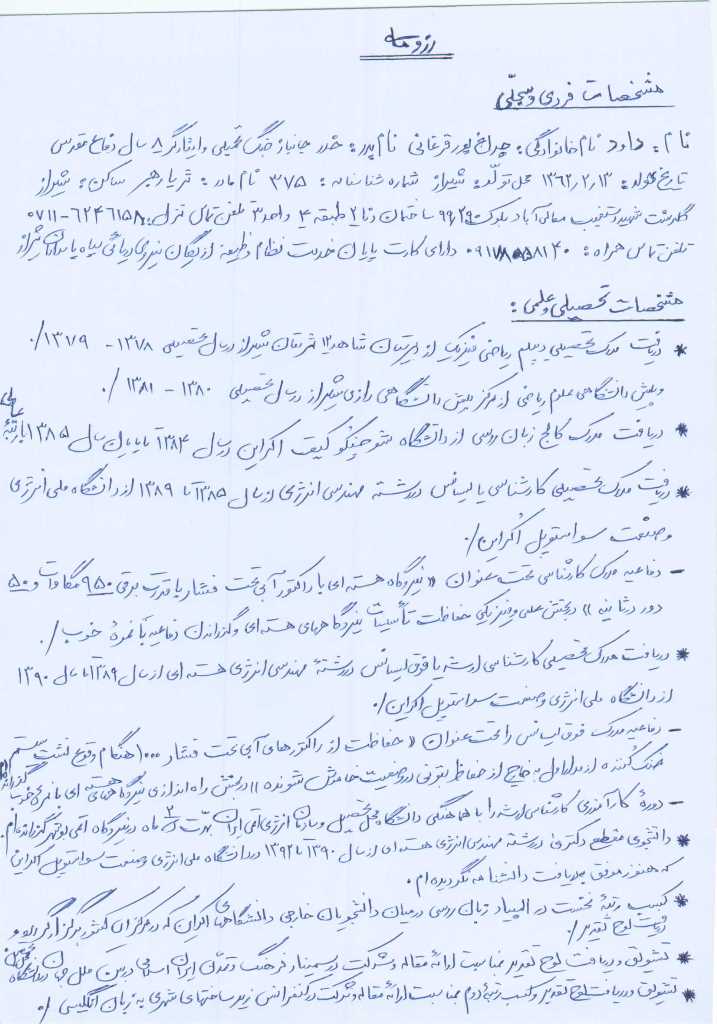 رزومه
مشخصات فردی و سجلّی
نام: داود نام خانوادگی: چراغ پور قرغانی نام پدر: حیدر جانباز جنگ تحمیلی و ایثارگر ۸ سال دفاع مقدس
تاریخ تولد: ۱۳۶۲,۲,۱۳ محل تولّد: شیراز شماره شناسنامه: ۳۷۵ نام مادر: ثریا رهبر ساکن: شیراز
گلدشت شهید منتخب معالی آباد بلوک ۹۹,۲۹ ساختمان دنا ۲ طبقه ۴ واحد ۳ تلفن تماس منزل: ۶۲۴۶۱۵۸-۰۷۱۱
تلفن تماس همراه: دارای کارت پایان خدمت نظام وظیفه از یگان نیروی دریائی سپاه پاسداران شیراز
مشخصات تحصیلی و علمی:
* دریافت مدرک تحصیلی دیپلم ریاضی فیزیک از دبیرستان شاهد ۱۲ شهرستان شیراز در سال تحصیلی ۱۳۷۸ - ۱۳۷۹/.
و پیش دانشگاهی علوم ریاضی از مرکز پیش دانشگاهی رازی شیراز در سال تحصیلی ۱۳۸۰ - ۱۳۸۱/.
* دریافت مدرک کالج زبان روسی از دانشگاه شوچنکو کیف اکراین در سال ۱۳۸۴ تا پایان سال ۱۳۸۵ با رتبۀ عالی
* دریافت مدرک تحصیلی کارشناسی یا لیسانس در رشته مهندسی انرژی از سال ۱۳۸۵ تا ۱۳۸۹ از دانشگاه ملی انرژی
و صنعت سواستوپل اُکراین/.
- دفاعیه مدرک کارشناسی تحت عنوان «نیروگاه هسته ای با راکتور آبی تحت فشار با قدرت برقی ۹۵۰ مگاوات و ۵۰
دور در ثانیه» در بخش علمی و فیزیکی حفاظت تأسیسات نیروگاههای هسته ای و گذراندن دفاعیه با نمرۀ خوب/.
* دریافت مدرک تحصیلی کارشناسی ارشد یا فوق لیسانس در رشتۀ مهندسی انرژی هسته ای از سال ۱۳۸۹ تا سال ۱۳۹۰
از دانشگاه ملی انرژی و صنعت سواستوپل اکراین/.
- دفاعیه مدرک فوق لیسانس را تحت عنوان «حفاظت از راکتورهای آبی تحت فشار ۱۰۰۰ هنگام وقوع نشت سیستم
خنک کننده از مدار اول به خارج از حفاظ بتونی در وضعیت خاموش نشونده» در بخش راه اندازی نیروگاههای هسته ای با نمرۀ خوب گذرانده ام
- دورۀ کارآموزی کارشناسی ارشد را با هماهنگی دانشگاه محل تحصیل و سازمان انرژی اتمی ایران بمدت ۲ ماه در نیروگاه اتمی بوشهر گذرانده ام.
* دانشجوی مقطع دکتری در رشته مهندسی انرژی هسته ای از سال ۱۳۹۰ تا ۱۳۹۲ در دانشگاه ملی انرژی و صنعت سواستوپل اکراین
که هنوز موفق به دریافت دانشنامه نگردیده ام.
* کسب رتبۀ نخست در المپیاد زبان روسی در میان دانشجویان خارجی دانشگاههای اکراین که در مرکز آن کشور برگزار گردید و
دریافت لوح تقدیر/.
* تشویق و دریافت لوح تقدیر بمناسبت ارائۀ مقاله و شرکت در سمینار فرهنگ و تمدّن ایران اسلامی در بین ملل جهان در دانشگاه محل تحصیل
* تشویق و دریافت لوح تقدیر و کسب رتبۀ دوم بمناسبت ارائۀ مقاله و شرکت در کنفرانس زیرساختهای شهری به زبان انگلیسی/.